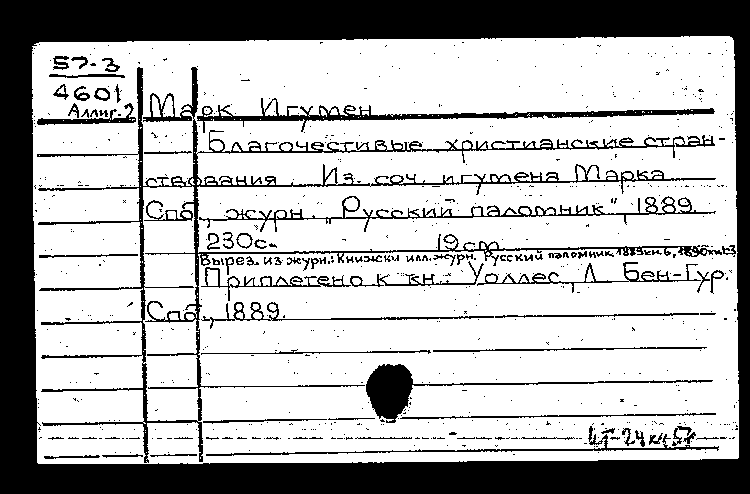 57-3
4601
Аллиг.2
Марк, Игумен
Благочестивые христианские стран-
ствования. Из. соч. игумена Марка
Спб., журн. „Русский паломник", 1889.
230с. 19cm
Вырез. из журн.: Книжки илл. журн. Русский паломник, 1889 кн. 6, 1890
Приплетено к кн.: Уоллес, Л. Бен-Гур.
Спб., 1889.